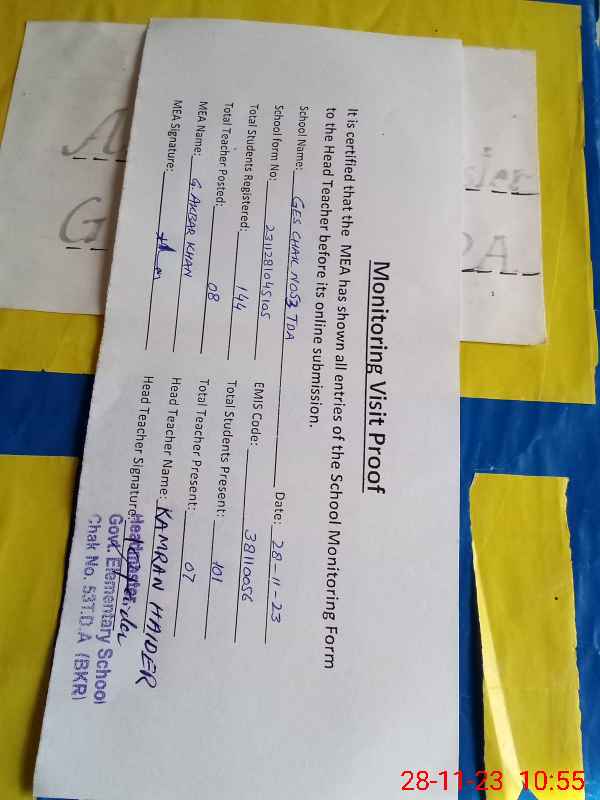 Monitoring Visit Proof
It is certified that the MEA has shown all entries of the School Monitoring Form
to the Head Teacher before its online submission.
School Name: GES CHAK NO53 TDA Date: 28-11-23
School form No: 2311281045105 EMIS Code: 38110056
Total Students Registered: 144 Total Students Present: 101
Total Teacher Posted: 08 Total Teacher Present: 07
MEA Name: G. AKBAR KHAN Head Teacher Name: KAMRAN HAIDER
MEA Signature: Head Teacher Signature:
Headmaster
Govt. Elementary School
Chak No. 53T.D.A (BKR)
28-11-23 10:55